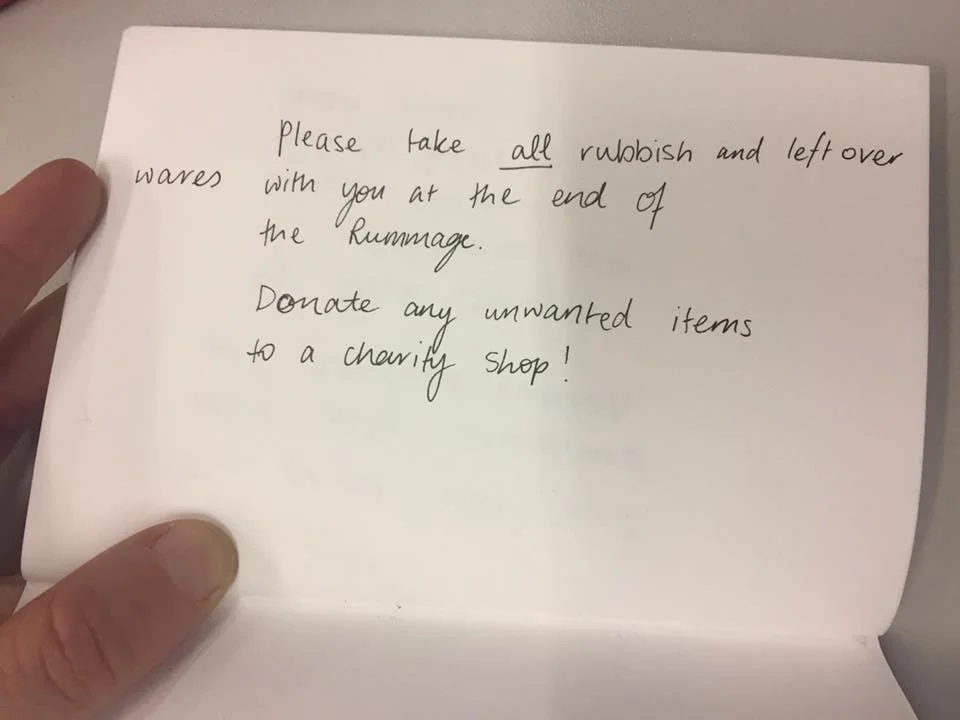 Please take all rubbish and left over
wares with you at the end of
the Rummage.
Donate any unwanted items
to a charity shop!